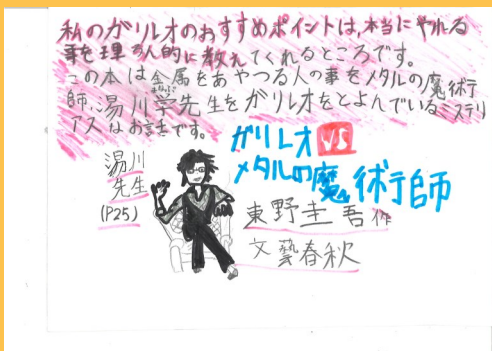 私のガリレオのおすすめポイントは、本当にやれる
事を理か人的に教えてくれるところです。
この本は金属をあやつる人の事をメタルの魔術
師、湯川学先生をガリレオをとよんでいるミステリ
アスなお話です。
ガリレオVS
メタルの魔術師
湯川
先生
(P25)
東野圭吾作
文藝春秋